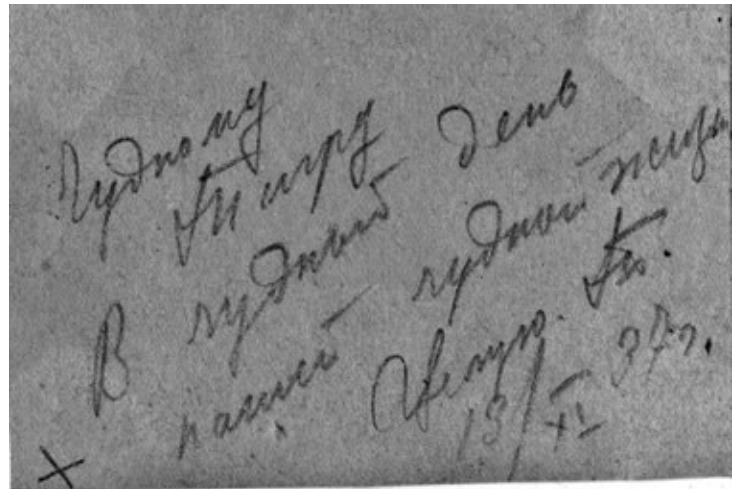 Чудному
Тигру
В чудный день
нашей чудной жизн
Целую. Т.
13/XI 37г.